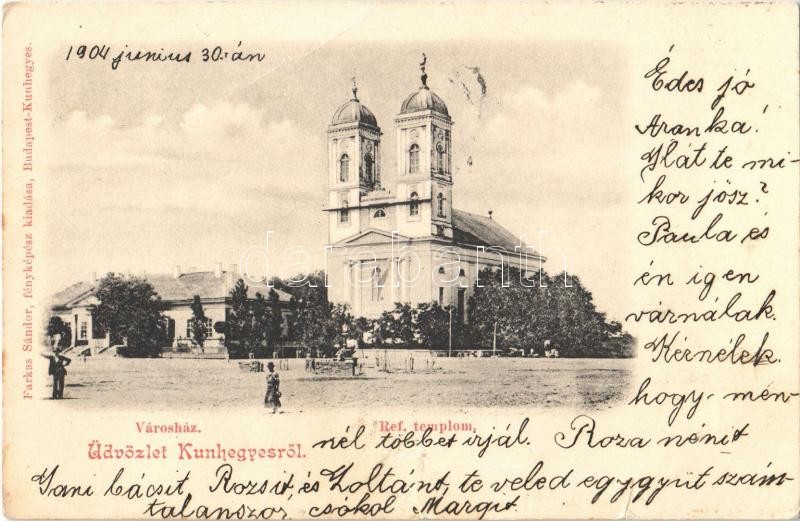 1904 junius 30.-án
Édes jó
Aranka!
Hát te mi-
kor jösz?
Paula és
én igen
várnálak.
Kérnélek
hogy men-
nél többet irjál. Roza nénit
Jani bácsit Rozsit, és Zoltánt, te veled egygyüt szám-
talanszor csókol Margit.
Városház.
Ref. templom.
Üdvözlet Kunhegyesről.
Farkas Sándor, fényképész kiadása, Budapest-Kunhegyes.
darabanth